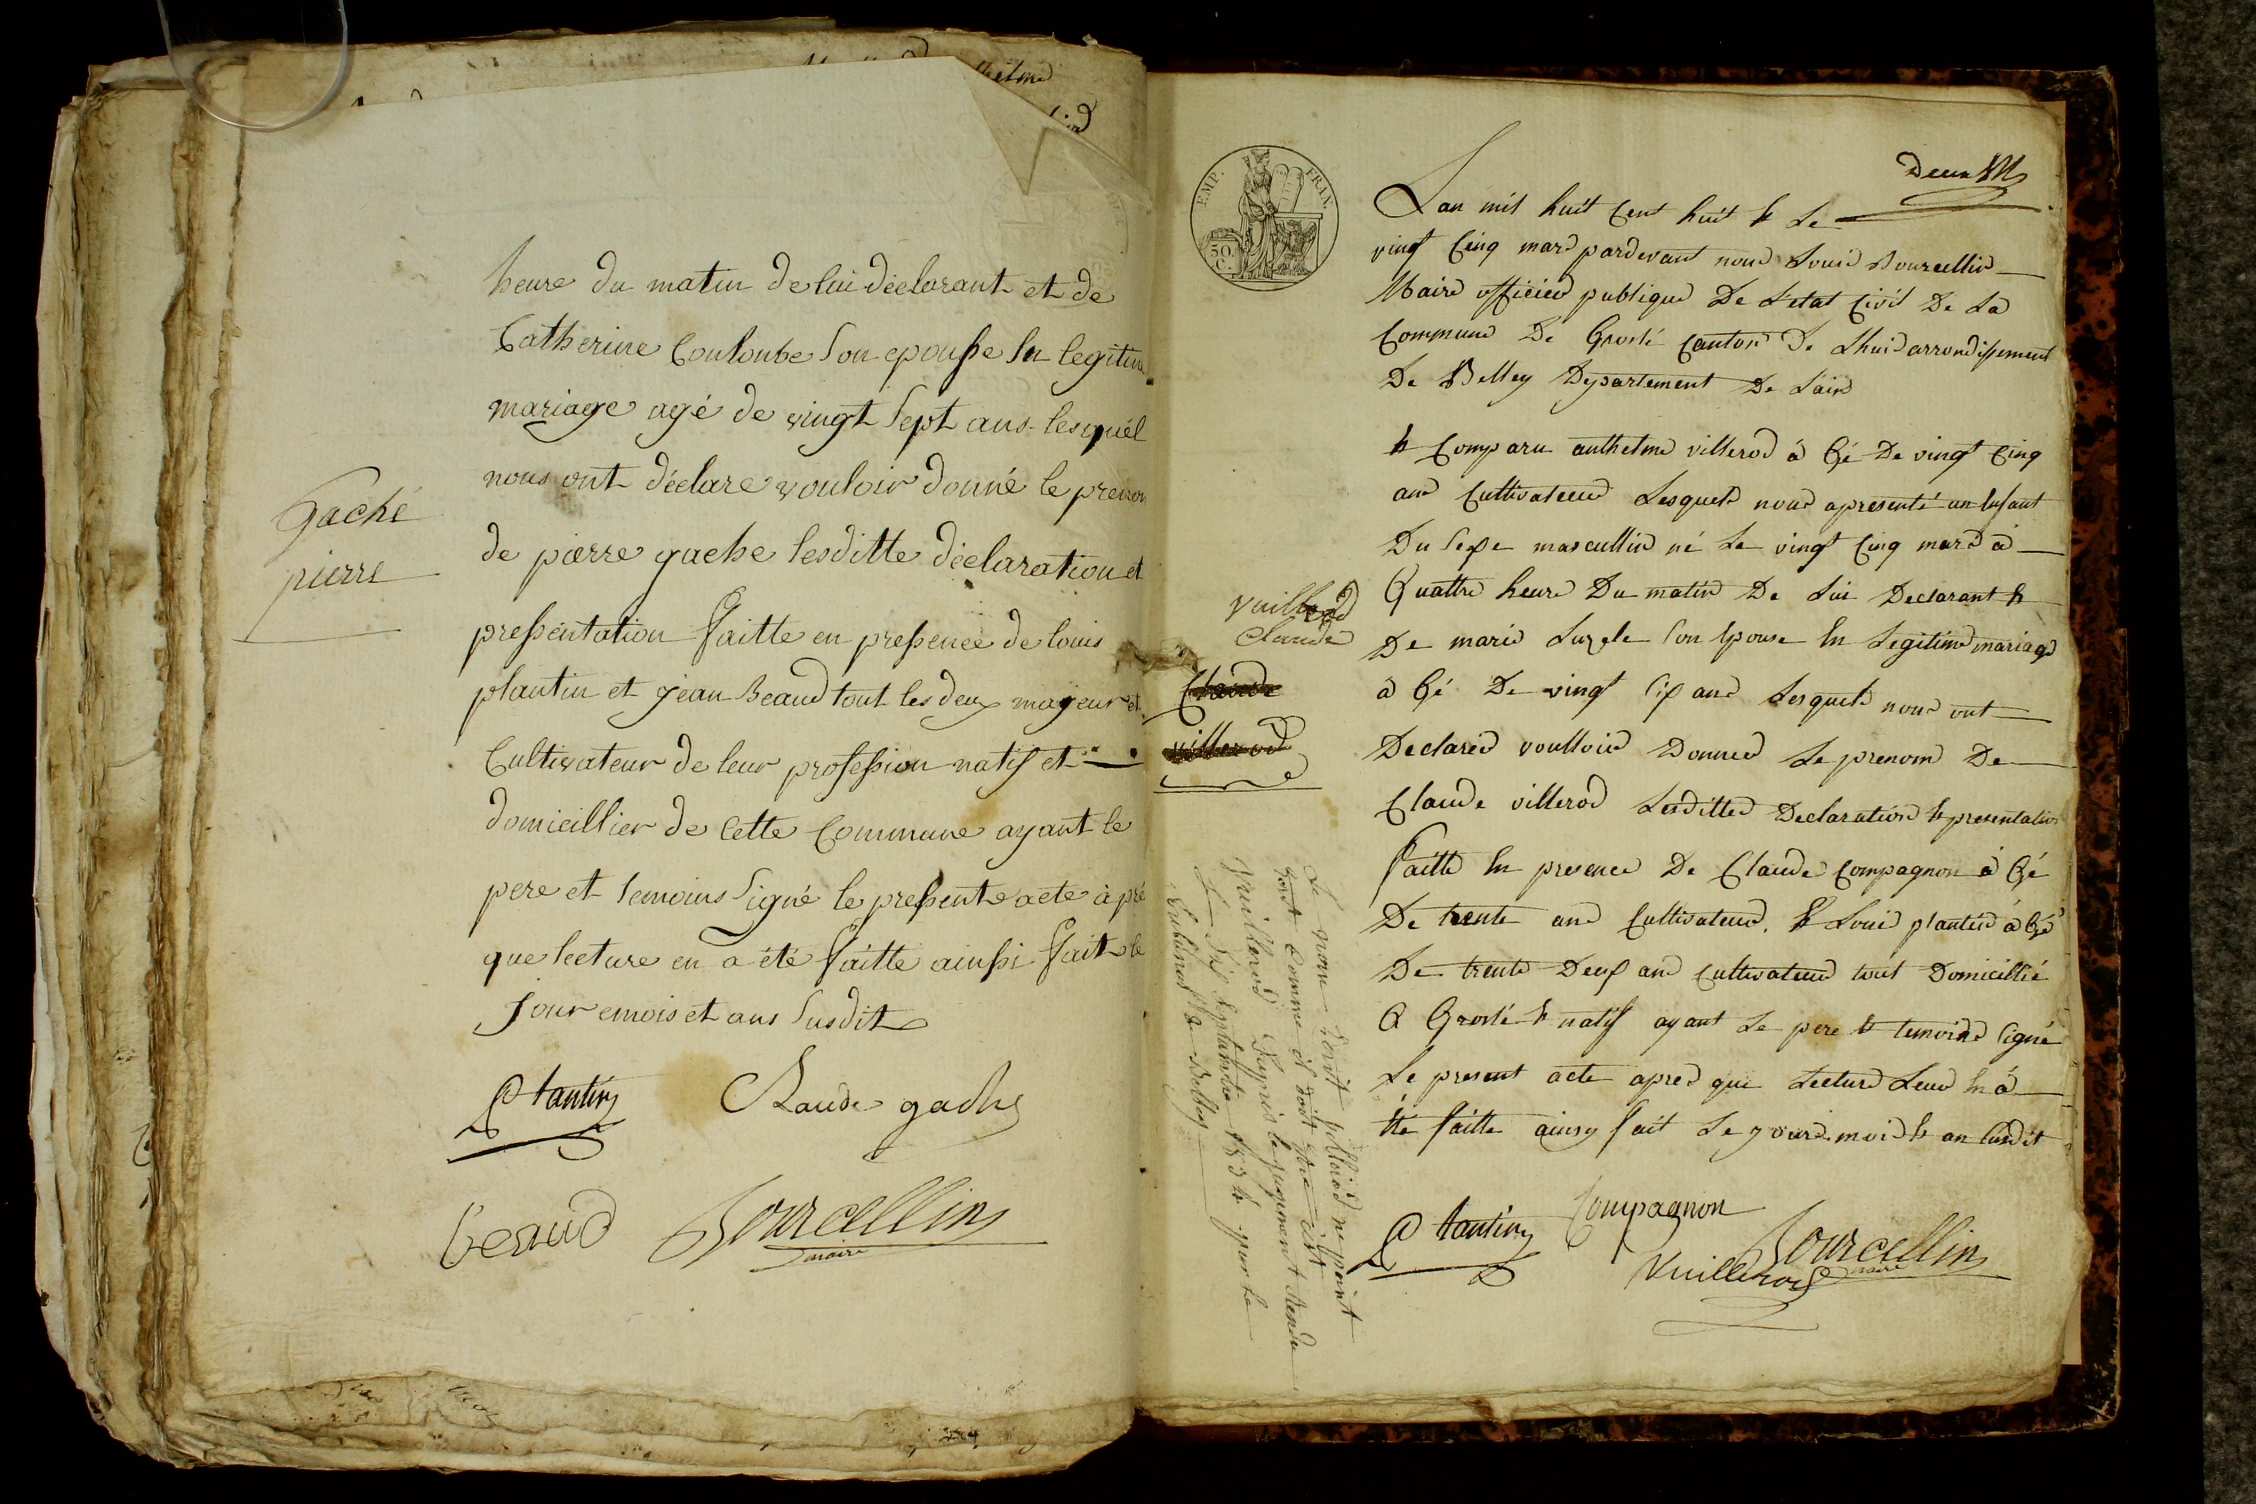 heure du matin de lui déclarant et de
Catherine Couloube son epouse en legitime
mariage agé de vingt sept ans lesquél
nous ont déclaré vouloir donné le prenom
de pierre gache lesditte déclaration et
pressentation faitte en pressence de louis
plantin et jean Beaud tout les deux mayeur et
Cultivateur de leur profession natif et
domicillier de Cette Commune ayant le
pere et temoins signé le pressente acte à pré
que lecture en a été faitte ainssi fait le
jour emois et ans susdit
Gaché
pierre
Plantin
Claude gache
beaud
Bourcellin
maire
EMP. FRAN.
50.
C.
Deux
Lan mil huit Cent huit & Le
vingt Cinq mars pardevant nous Louis Bourcellin
Maire officier publique De L'etat Civil De La
Commune De Groslé Canton De Lhuis arrondissement
De Belley Departement De Lain
à Comparu anthelme villerod à Gé De vingt Cinq
ans Cultivateur Lesquels nous apresenté un Enfant
Du sexe mascullin né Le vingt Cinq mars à
Quattre heure Du matin De Lui Declarant &
De marie Son Epouse En Legitime mariage
à Gé De vingt six ans Lesquels nous ont
Declarer voulloir Donner Le prenom De
Claude villerod Lesdittes Declaration & presentation
faitte En presence De Claude Compagnon à Gé
De trente ans Cultivateur & Louis plantin à Gé
De trente Deux ans Cultivateur tout Domicillié
à Groslé & natif ayant Le pere & temoins signé
Le present acte apres que Lecture Leur En à
été faitte ainsy fait Le jour mois & an susdit
Vuillerod
Claude
Claude
villerod
Le nom écrit villerod ne point
écrit comme il doit être c'est
Vuillerod Depuis le jugement rendu
Le dix Septembre 1834 par le
tribunal de Belley
Plantin
Compagnon
Vuillerod
Bourcellin
maire